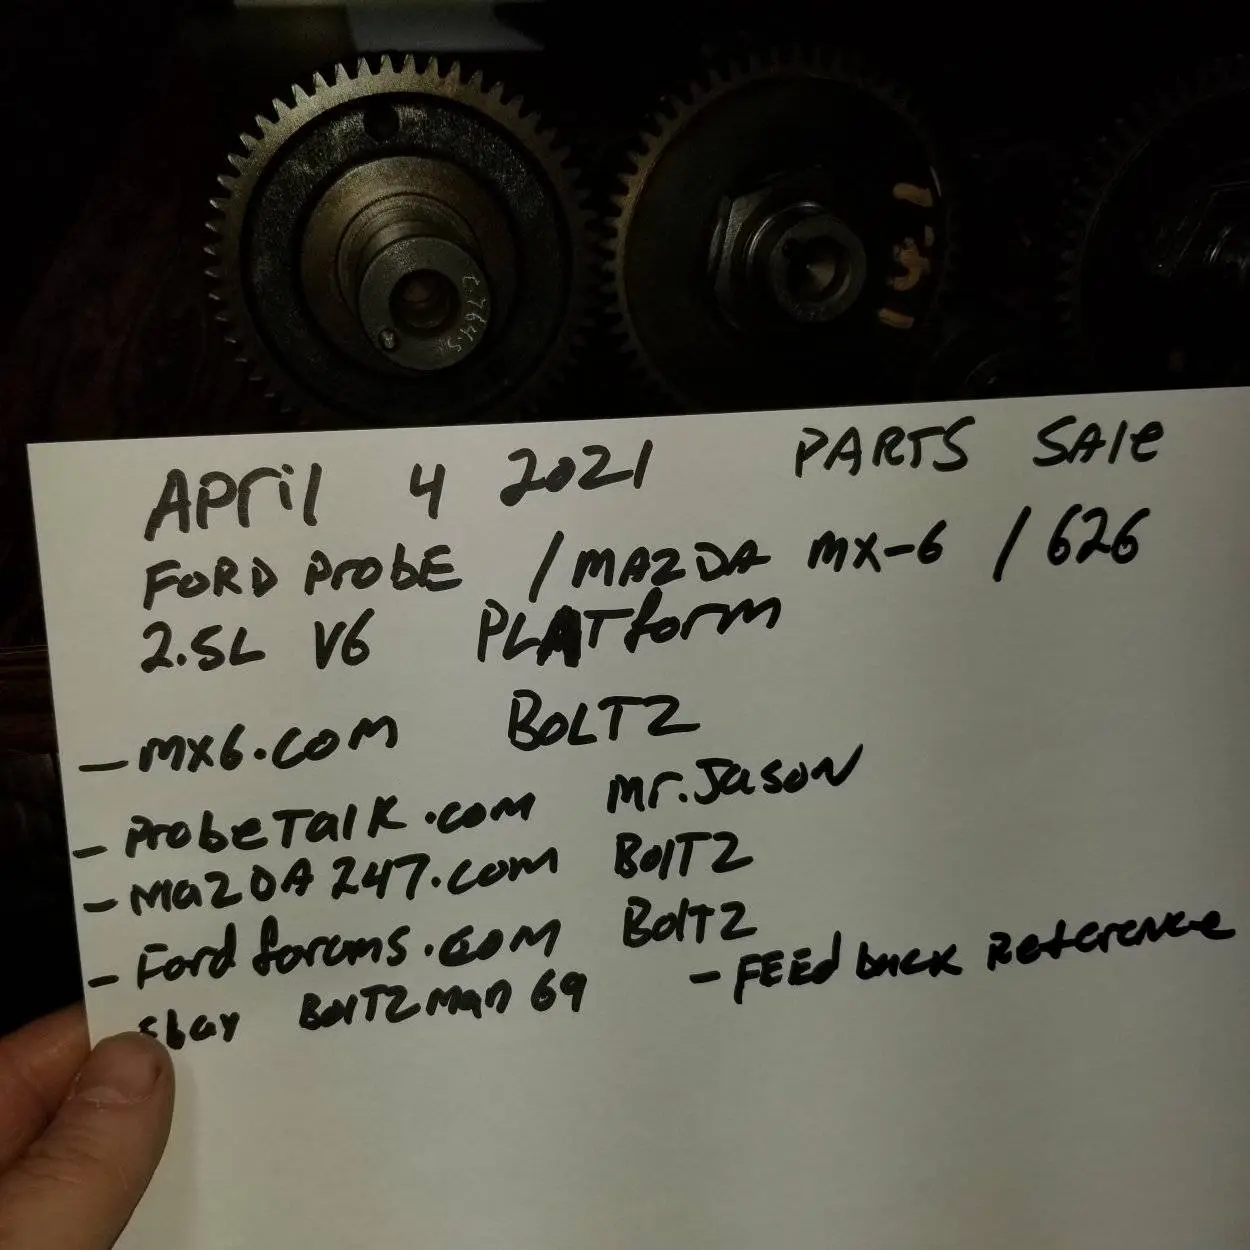 2764.5
APriL 4 2021 PARTS SAle
FORD ProbE / MAZDA MX-6 / 626
2.5L V6 PLATform
- mx6.com BOLTZ
- ProbeTalk.com Mr.Jason
- MaZDA247.com BolTZ
- Fordforums.com BoltZ
ebay BolTZman69 - FEEdback Reference